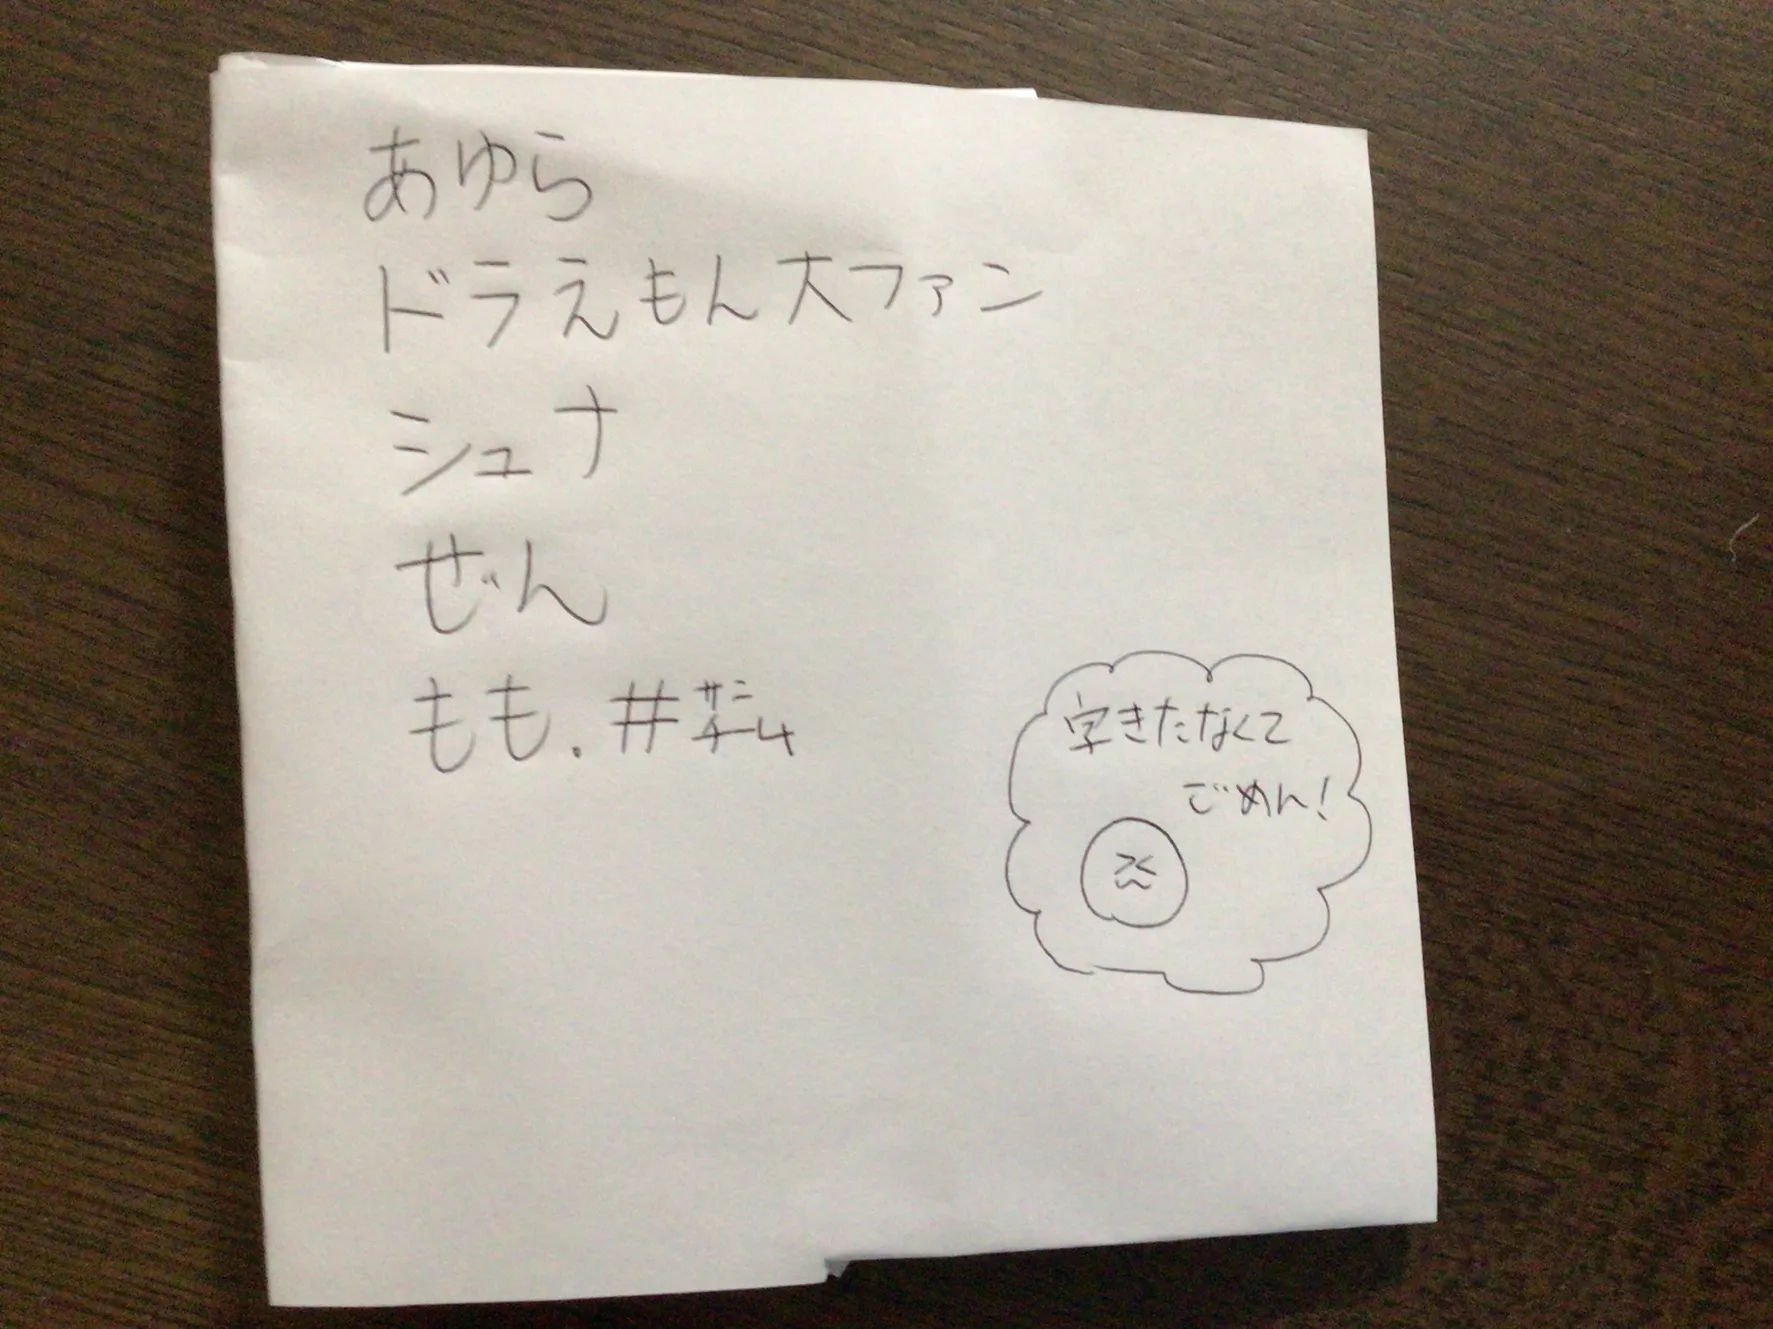 あゆら
ドラえもん大ファン
シュナ
ぜん
もも.#サニチーム
字きたなくて
ごめん!